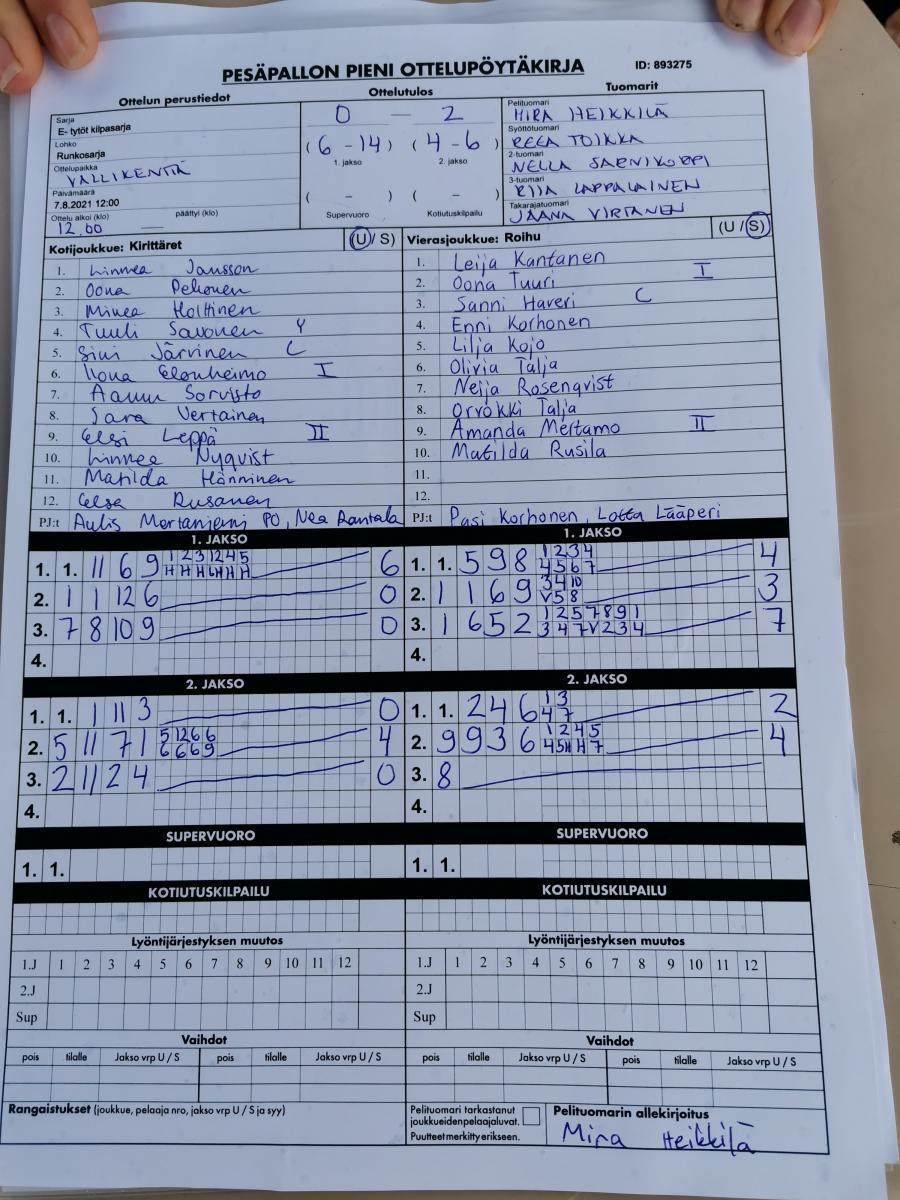 PESÄPALLON PIENI OTTELUPÖYTÄKIRJA ID: 893275
Ottelun perustiedot Ottelutulos Tuomarit
Sarja
E- tytöt kilpasarja
Lohko
Runkosarja
Ottelupaikka
VALLIKENTTÄ
Päivämäärä
7.8.2021 12:00
Ottelu alkoi (klo) päättyi (klo)
12.00 —
0 — 2
(6 - 14) (4 - 6)
1. jakso 2. jakso
( - ) ( - )
Supervuoro Kotiutuskilpailu
Pelituomari
MIRA HEIKKILÄ
Syöttötuomari
REEA TOIKKA
2-tuomari
NELLA SARNIKORPI
3-tuomari
RIIA LAPPALAINEN
Takarajatuomari
JAANA VIRTANEN
Kotijoukkue: Kirittäret (U / S)
1. Linnea Jansson
2. Oona Pekonen
3. Minea Holttinen
4. Tuuli Savonen Y
5. Sini Järvinen C
6. Ilona Elonheimo I
7. Aamu Sorvisto
8. Sara Vertainen
9. Elsi Leppä II
10. Linnea Nyqvist
11. Matilda Hänninen
12. Elsa Rusanen
PJ:t Aulis PO, Nea Rantala
Vierasjoukkue: Roihu (U / S)
1. Leija Kantanen
2. Oona Tuuri I
3. Sanni Haveri C
4. Enni Korhonen
5. Lilja Kojo
6. Olivia Talja
7. Neija Rosenqvist
8. Orvokki Talja
9. Amanda Mertamo II
10. Matilda Rusila
11.
12.
PJ:t Pasi Korhonen, Lotta Lääperi
1. JAKSO
1. 1. 11 6 9 1 2 3 12 4 5 6
H H H 6 H H H
2. 1 1 12 6 0
3. 7 8 10 9 0
4.
1. JAKSO
1. 1. 5 9 8 1 2 3 4 4
4 5 6 7
2. 1 1 6 9 3 4 10 3
V 5 8
3. 1 6 5 2 1 2 5 7 8 9 1 7
3 4 7 V 2 3 4
4.
2. JAKSO
1. 1. 1 11 3 0
2. 5 11 7 1 5 12 6 6 4
6 6 6 9
3. 2 11 2 4 0
4.
2. JAKSO
1. 1. 2 4 6 1 3 2
4 7
2. 9 9 3 6 1 2 4 5 4
4 5 H H 7
3. 8
4.
SUPERVUORO SUPERVUORO
1. 1. 1. 1.
KOTIUTUSKILPAILU KOTIUTUSKILPAILU
Lyöntijärjestyksen muutos Lyöntijärjestyksen muutos
1.J 1 2 3 4 5 6 7 8 9 10 11 12 1.J 1 2 3 4 5 6 7 8 9 10 11 12
2.J 2.J
Sup Sup
Vaihdot Vaihdot
pois tilalle Jakso vrp U / S pois tilalle Jakso vrp U / S pois tilalle Jakso vrp U / S pois tilalle Jakso vrp U / S
Rangaistukset (joukkue, pelaaja nro, jakso vrp U / S ja syy)
Pelituomari tarkastanut
joukkueiden pelaajaluvat.
Puutteet merkitty erikseen.
Pelituomarin allekirjoitus
Mira Heikkilä